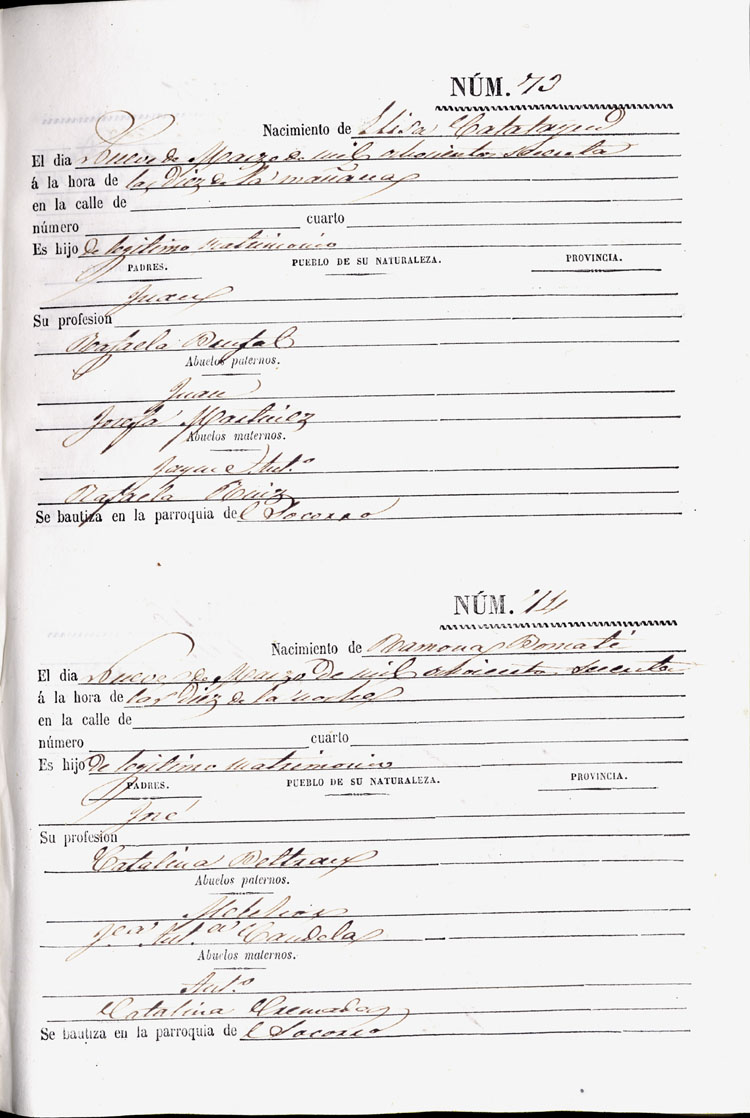 NÚM. 73
Nacimiento de Elisa Catalayud
El dia Nueve de Marzo de mil ochocientos sesenta
á la hora de las diez de la mañana
en la calle de
número cuarto
Es hijo de legitimo matrimonio
PADRES. PUEBLO DE SU NATURALEZA. PROVINCIA.
Juan
Su profesion
Rafaela
Abuelos paternos.
Juan
Josefa Martinez
Abuelos maternos.
Jayme Ant.º
Rafaela Ruiz
Se bautiza en la parroquia del Socorro
NÚM. 74
Nacimiento de Ramona Bomati
El dia Nueve de Marzo de mil ochocientos sesenta
á la hora de las diez de la noche
en la calle de
número cuarto
Es hijo de legitimo matrimonio
PADRES. PUEBLO DE SU NATURALEZA. PROVINCIA.
José
Su profesion
Catalina Beltran
Abuelos paternos.
Melchor
Candela
Abuelos maternos.
Ant.º
Catalina Cremades
Se bautiza en la parroquia de l Socorro